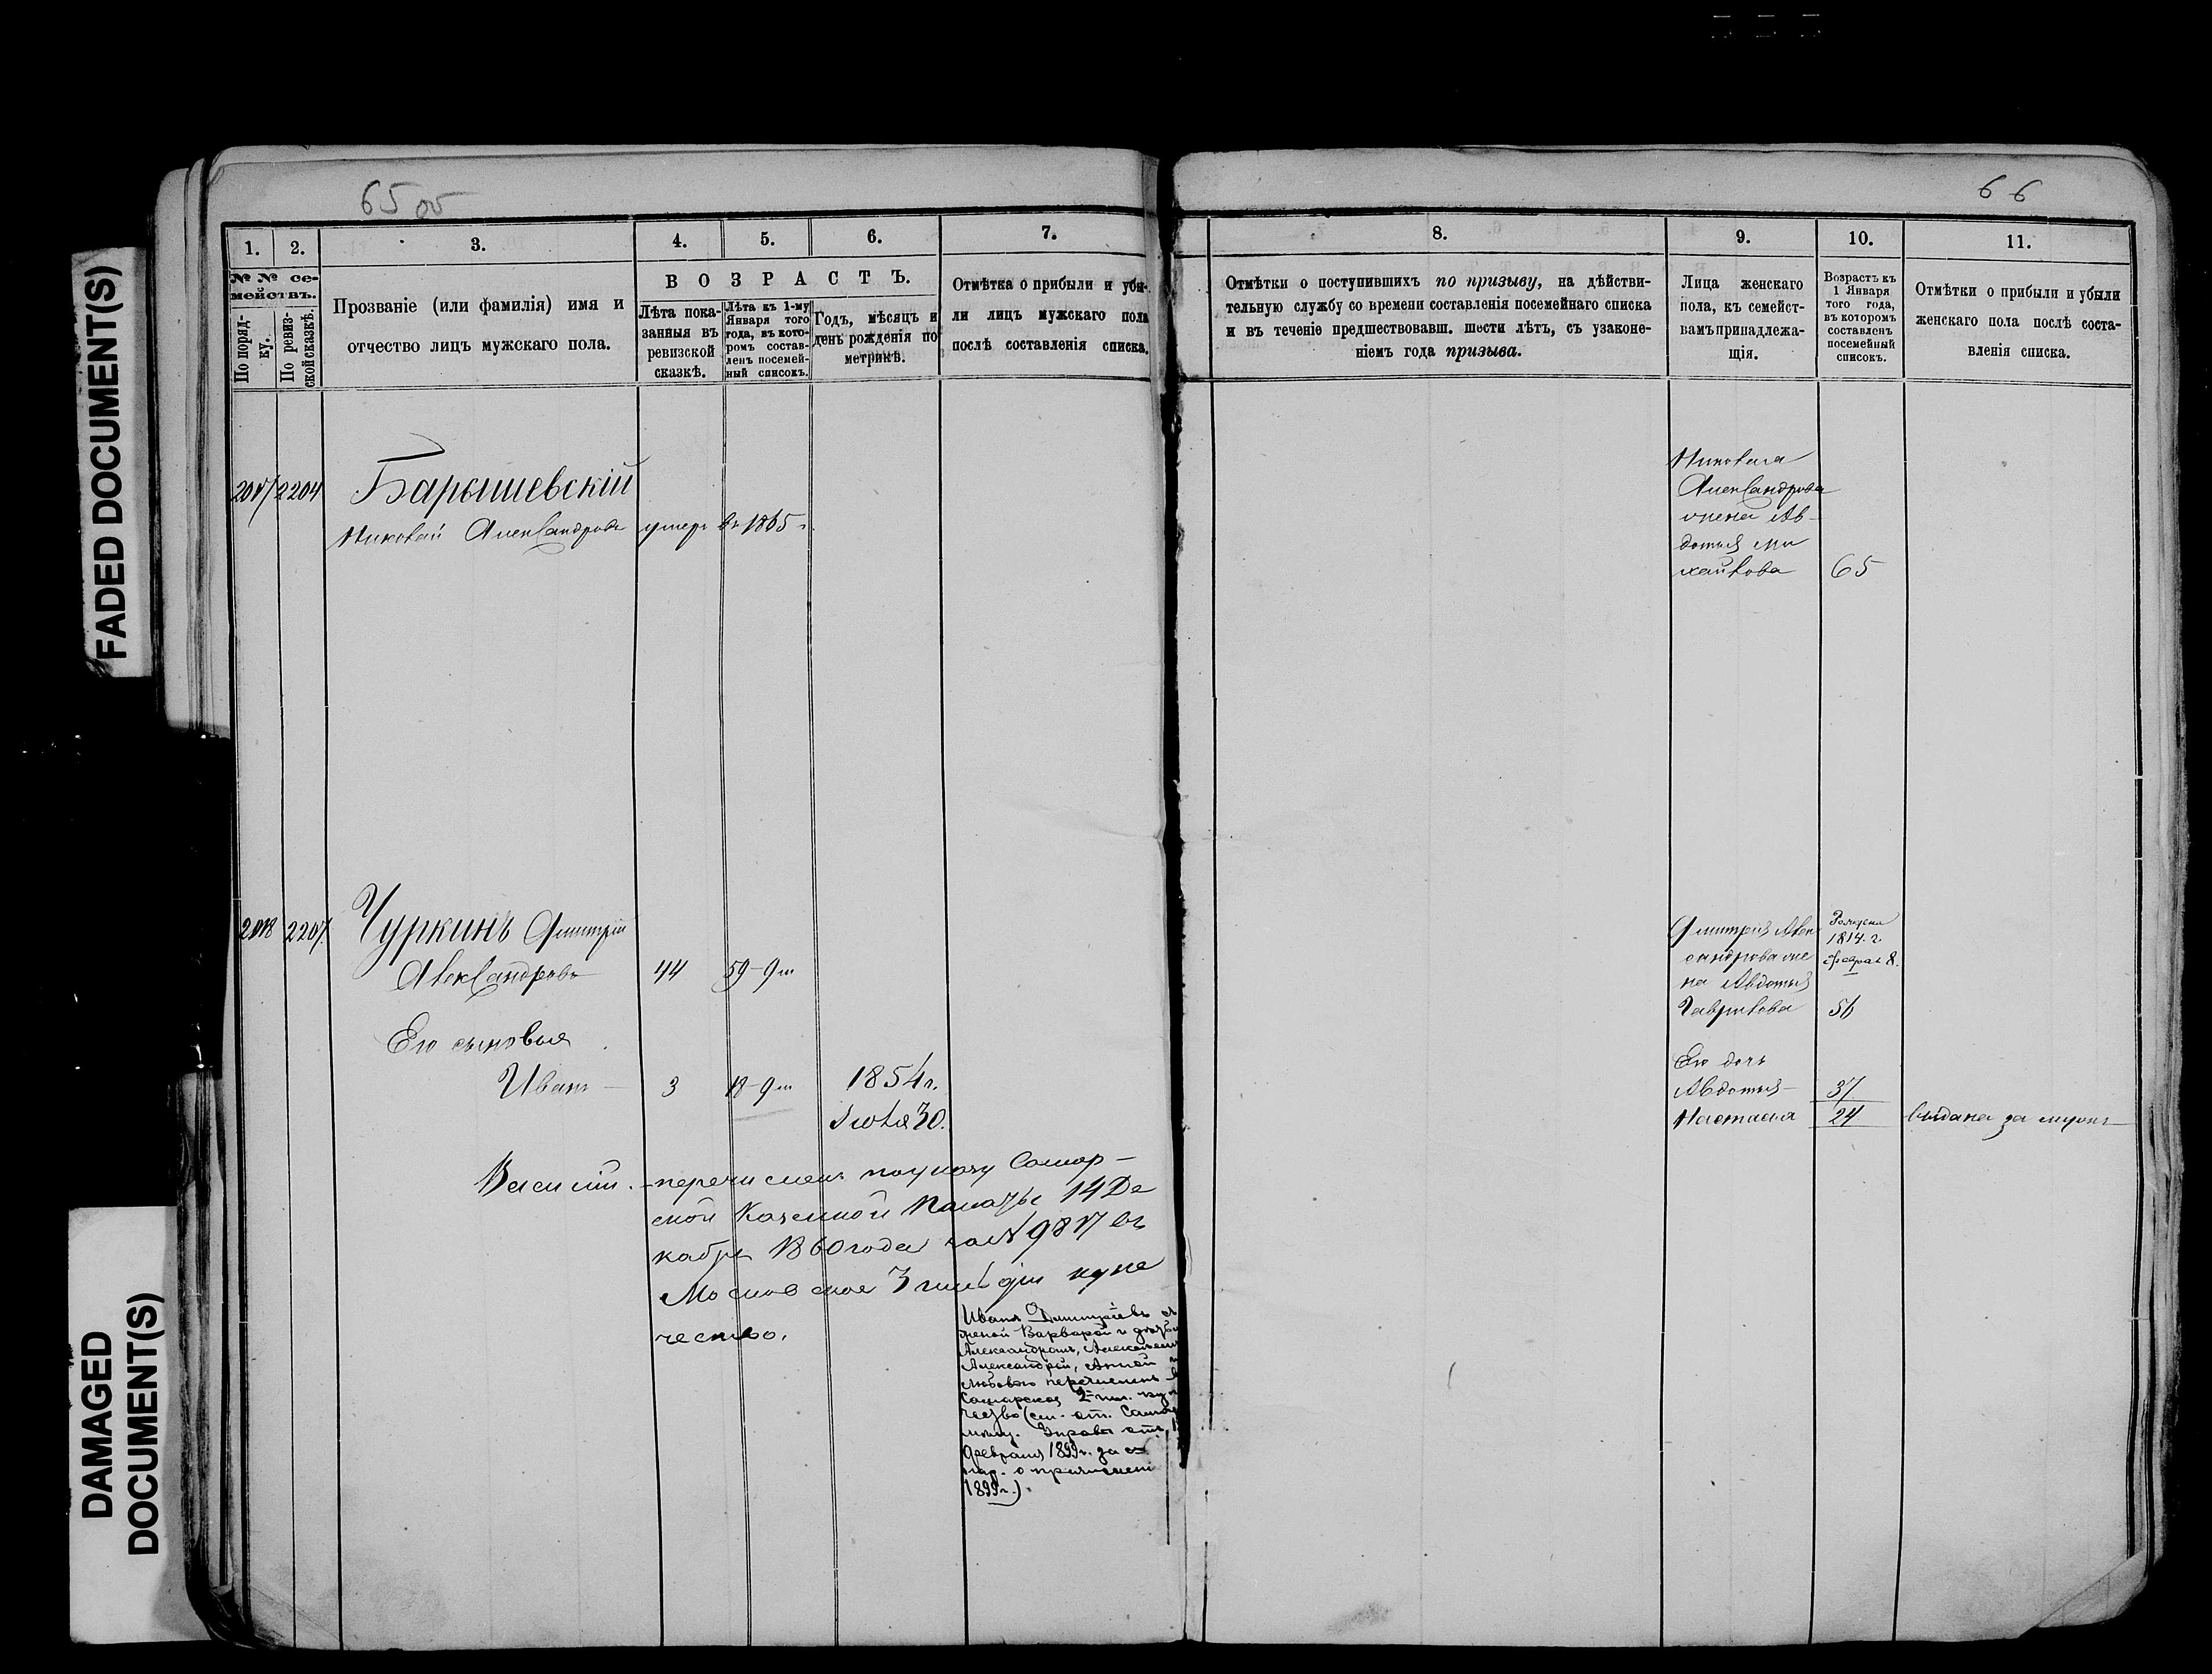 FADED DOCUMENT(S)
DAMAGED
DOCUMENT(S)
65 об
1. 2. 3. 4. 5. 6. 7.
№ № се-
мействъ.
По поряд-
ку.
По ревиз-
ской сказкѣ.
Прозваніе (или фамилія) имя и
отчество лицъ мужскаго пола.
ВОЗРАСТЪ.
Лѣта пока-
занныя въ
ревизской
сказкѣ.
Лѣта къ 1-му
Января того
года, въ кото-
ромъ состав-
ленъ посемей-
ный списокъ.
Годъ, мѣсяцъ и
день рожденія по
метрикѣ.
Отмѣтка о прибыли и убы-
ли лицъ мужскаго пола
послѣ составленія списка.
2204 Барышевскій
Николай Александровъ умеръ въ 1865 г.
2207 Чуркинъ Дмитрій
Александровъ 44 59-9 м
Его сыновья
Иванъ 3 18-9 м 1854 г.
Іюля 30.
Василій. перечисленъ по указу Самар-
ской Казенной Палаты 14 Де
кабря 1860 года за № 9817 въ
Московское 3 гильдіи купе
чество.
Иванъ Дмитріевъ съ
женой Варварой и дѣтьми
Александромъ, Алексѣемъ
Александрой, Анной и
Любовью перечисленъ въ
Самарское 2 гил. куп
чество (см. от. Самар
Управы отъ
Февраля 1899 г. за
о причислені
1899 г.)
66
8. 9. 10. 11.
Отмѣтки о поступившихъ по призыву, на дѣйстви-
тельную службу со времени составленія посемейнаго списка
и въ теченіе предшествовавш. шести лѣтъ, съ узаконе-
ніемъ года призыва.
Лица женскаго
пола, къ семейст-
вамъ принадлежа-
щія.
Возрастъ къ
1 Января
того года,
въ которомъ
составленъ
посемейный
списокъ.
Отмѣтки о прибыли и убыли
женскаго пола послѣ соста-
вленія списка.
Николая
Александрова
жена Ав-
дотья Ми
хайлова 65
Дмитрія Алек
сандрова же
на Авдотья
Гаврилова 56
1814 г.
Феврал 8.
Его дочь
Авдотья 37
Настасья 24 выдана за мужъ